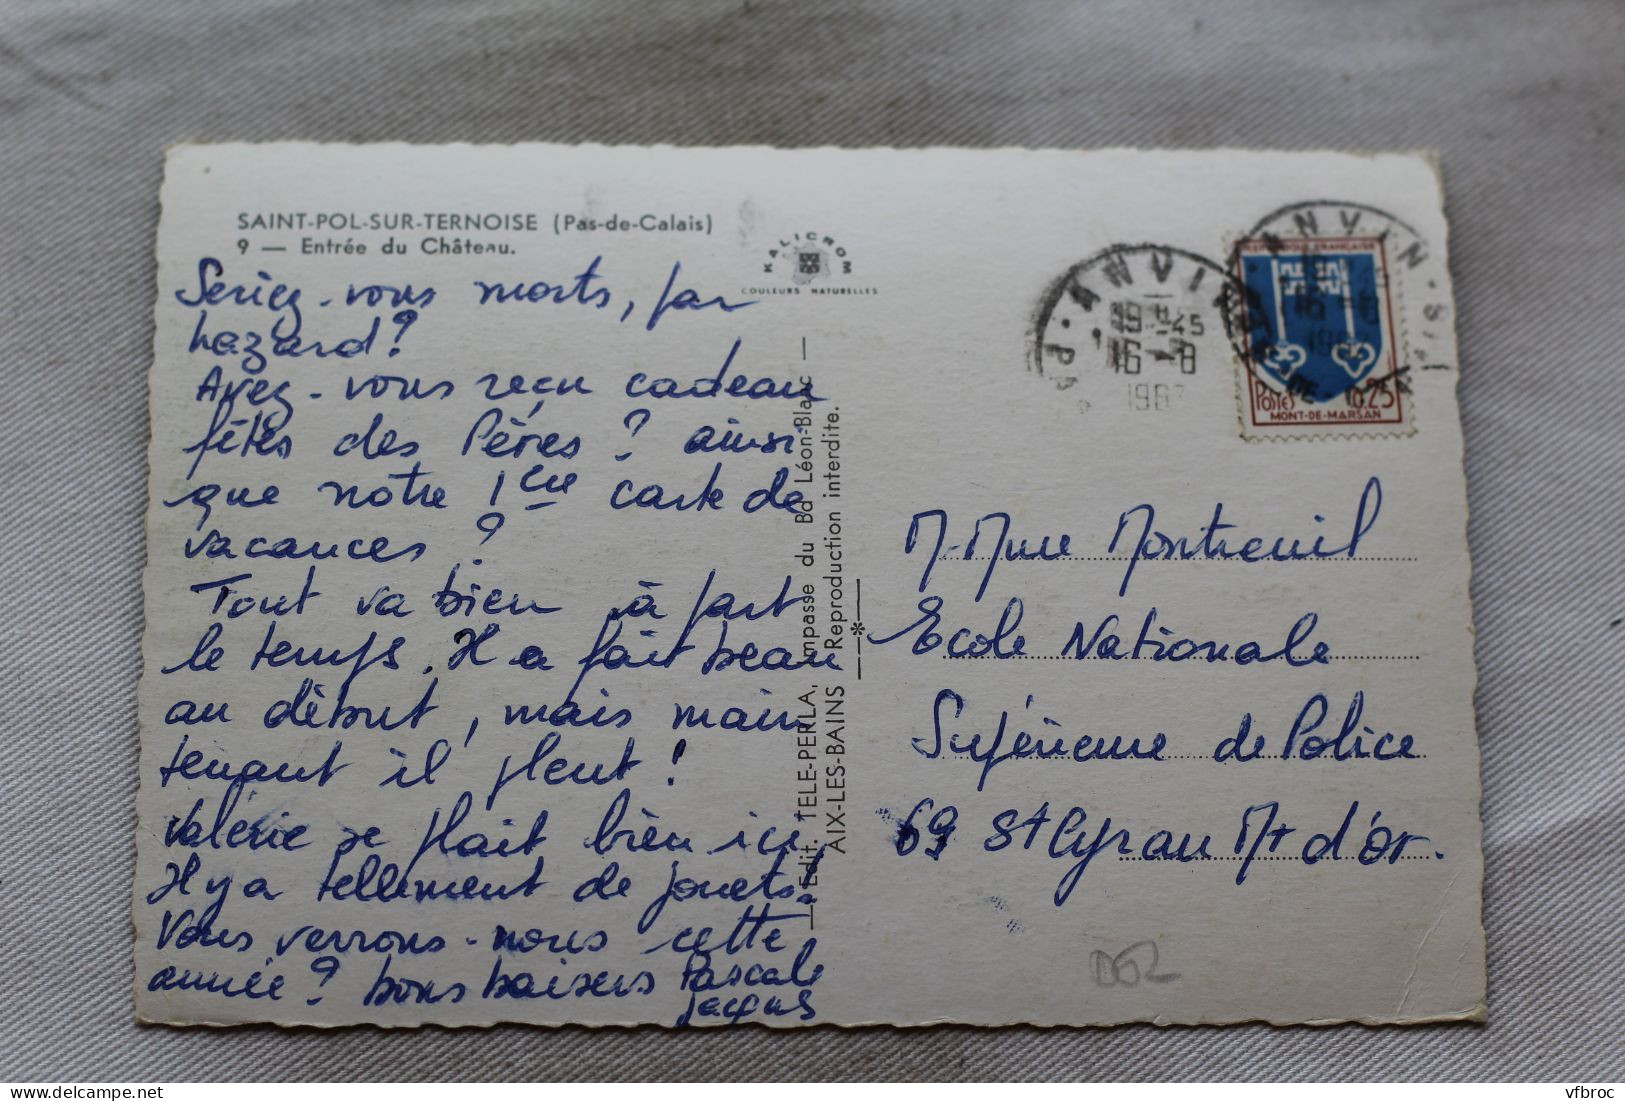 SAINT-POL-SUR-TERNOISE (Pas-de-Calais)
9 — Entrée du Château.
KALICROM
COULEURS NATURELLES
Seriez-vous morts, par
hazard?
Avez-vous reçu cadeau
fêtes des Pères ? ainsi
que notre 1ere carte de
vacances ?
Tout va bien à part
le temps. Il a fait beau
au début, mais main
tenant il pleut !
Valérie se plait bien ici,
Il y a tellement de jouets!
Vous verrons-nous cette
année ? bons baisers Pascale
Jacques
Edit. TELE-PERLA, Impasse du Bd Léon-Blanc —
AIX-LES-BAINS Reproduction interdite.
ANVIN
19-45
16-8
ANVIN
16-8
REPUBLIQUE FRANÇAISE
POSTES 0,25
MONT-DE-MARSAN
M. Mme Montreuil
Ecole Nationale
Supérieure de Police
69 St Cyr au Mt d'or.
D62
vfbroc